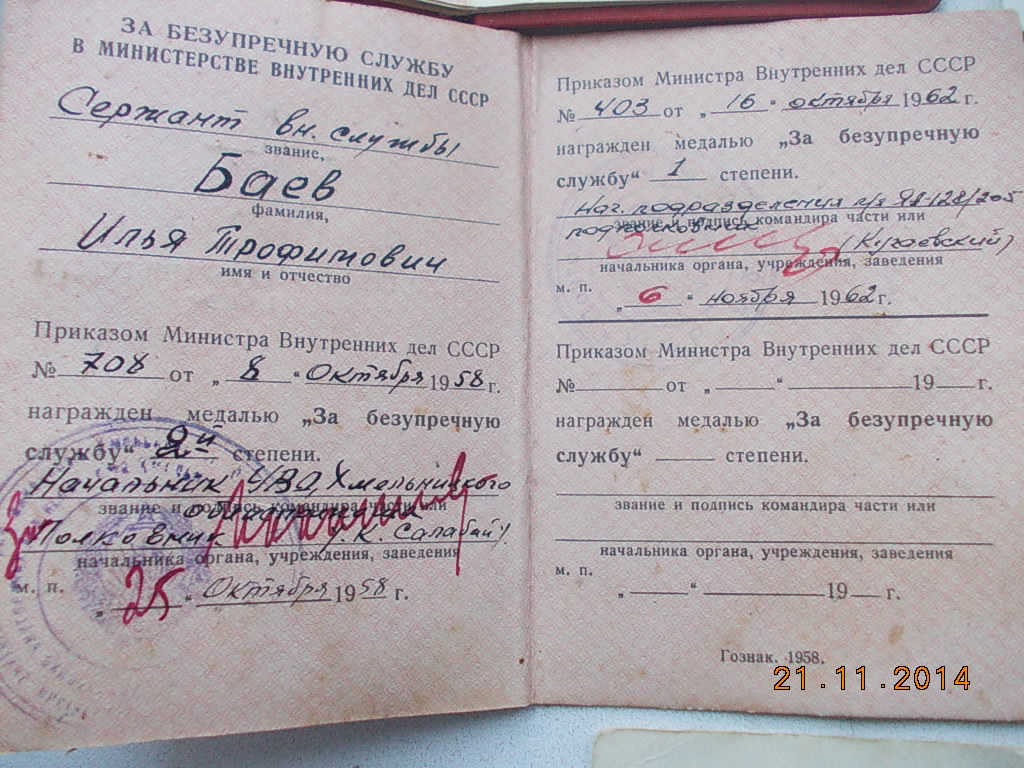 ЗА БЕЗУПРЕЧНУЮ СЛУЖБУ
В МИНИСТЕРСТВЕ ВНУТРЕННИХ ДЕЛ СССР
Сержант вн. службы
звание,
Баев
фамилия,
Илья Трофимович
имя и отчество
Приказом Министра Внутренних дел СССР
№ 708 от „ 8 “ Октября 1958 г.
награжден медалью „За безупречную
службу“ 2й степени.
Начальник УВД Хмельницкого
звание и подпись командира части или
Полковник
начальника органа, учреждения, заведения
м. п.
„ 25 “ Октября 1958 г.
Приказом Министра Внутренних дел СССР
№ 403 от „ 16 “ октября 1962 г.
награжден медалью „За безупречную
службу“ 1 степени.
Нач. подразделения п/я ЯЯ-128/205
звание и подпись командира части или
подполковник
начальника органа, учреждения, заведения
м. п.
„ 6 “ ноября 1962 г.
Приказом Министра Внутренних дел СССР
№ от „ “ 19 г.
награжден медалью „За безупречную
службу“ степени.
звание и подпись командира части или
начальника органа, учреждения, заведения
м. п.
„ “ 19 г.
Гознак. 1958.
21.11.2014